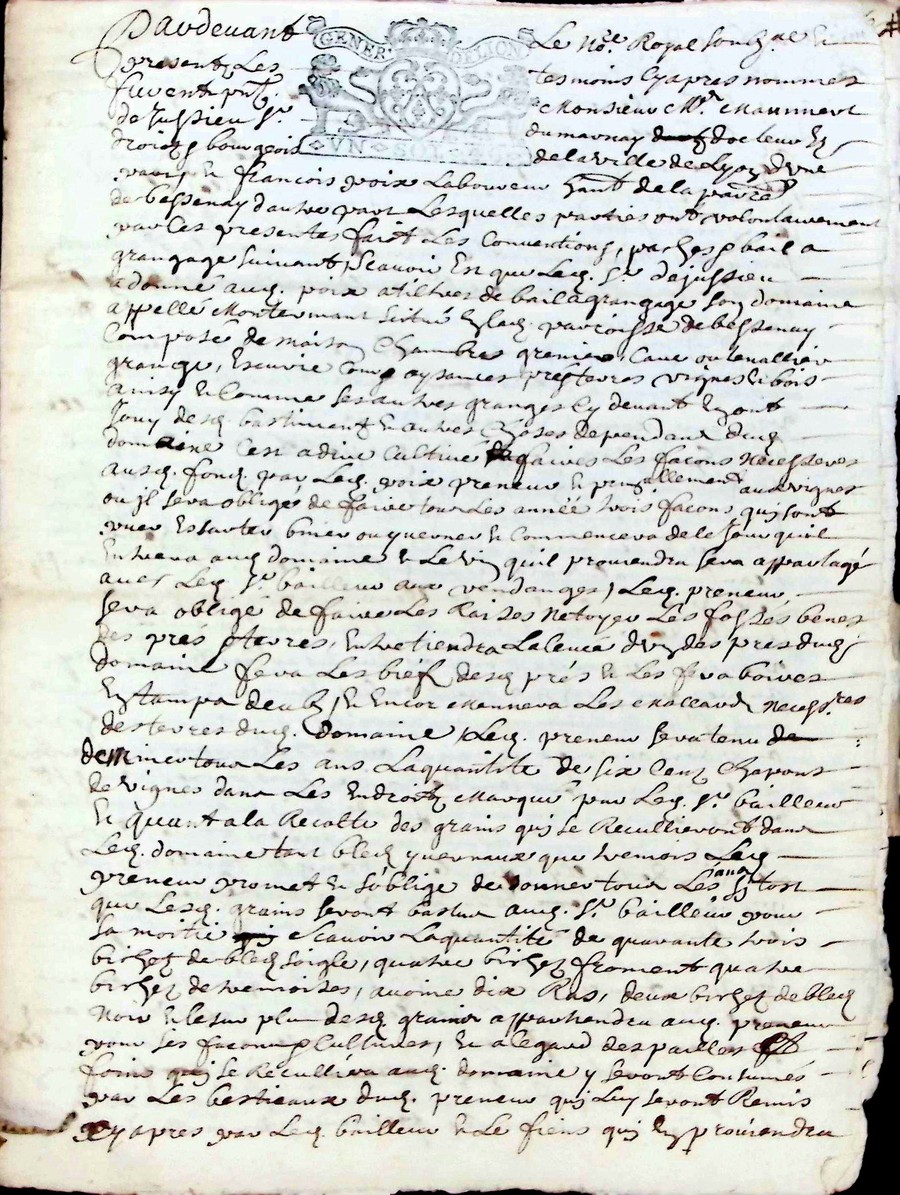 Pardevant Le No.re Royal souz.né &
presents Les tesmoins cy apres nommes
furent pnt. Monsieur Mr.
de Jussieu Sr dumarnay docteur Es
droictz & bourgeois de la ville de Lyon d'une
part, & francois poix Laboureur hant de la parre
de bessenay d'autre part Lesquelles parties ont volontairement
par Ces presentes faict Les Conventions, paches & bail a
grangage suivant, scavoir Est que Led. Sr dejussieu
a donné aud. poix a tiltres de bail a grangage son domaine
appellé Montermant scitué En lad. parroisse de bessenay
Composé de maison Chambres grenier, Cave ou Cenallier
grange, Escurie Cour aysances prés terres vignes & bois
ainsy & Comme Les autres grangers Cy devant En ont
Jouy desd. bastiment & autres choses dependant dud.
domaine c'est a dire Cultivé faires Les facons necesseres
ausd. fond par Led. poix preneur & prnallement aux vignes
ou jl sera obligé de faire tous Les année trois facons quj sont
Essarter biner ou & Commencera de le Jour quil
Entrera aud. domaine & Le vin quil proviendra sera appartagé
avec Led. Sr bailleur aux vendanges, Led. preneur
sera obligé de faire Les Raises netoyer Les fossés
des prés & terres, Entretiendra des pres dud.
domaine fera Les bief desd. prés & Les fera boives
En temps deub, & Encor Mennera Les necess.res
des terres dud. domaine, Led. preneur sera tenu de
tous Les ans La quantité de six Cent Chapons
de vignes dans Les Endroitz Marqué par Led. Sr bailleur
Et quant a la Recolte des grains quj se Recullieront dans
Led. domaine tant bled yvernaux que tremois Led.
preneur promet & s'oblige de donner tous Les ans sy tost
que Lesd. grains seront battus aud. Sr bailleur pour
sa moitié scavoir La quantité de quarante trois
bichet de bled soigle, quatre bichet froment quatre
bichet de tremoises, avoine dix Ras, deux bichet de bled
Noir & le sur plus desd. grains appartiendra aud. preneur
pour ses facons & Cultures, Et a legard des pailles &
foins quj se Recullira aud. domaine y seront Consumés
par Les bestieaux dud. preneur quj Luy seront Remis
Cy apres par Led. bailleur & Le fiens quj En proviendra
GENER DE LION
VN SOL